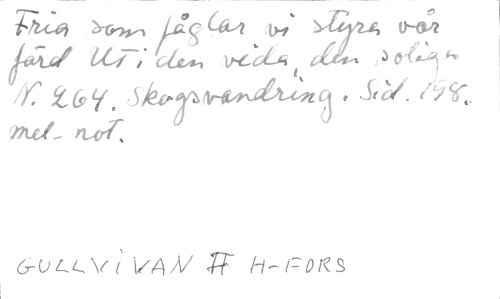 Fria som fåglar vi styra vår
färd Ut i den vida, den soliga
N. 264. Skogsvandring. Sid. 198.
mel- not.
GULLVIVAN II H-FORS